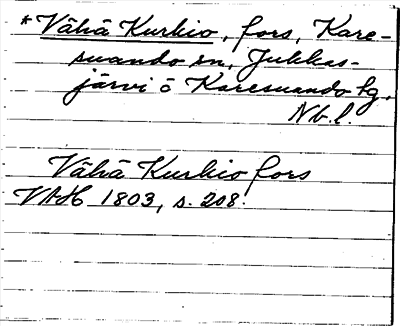 * Vähä Kurkio, fors, Kare-
suando sn, Jukkas-
järvi o Karesuando tg,
Nb. l.
Vähä Kurkio fors
VAH 1803, s. 208.